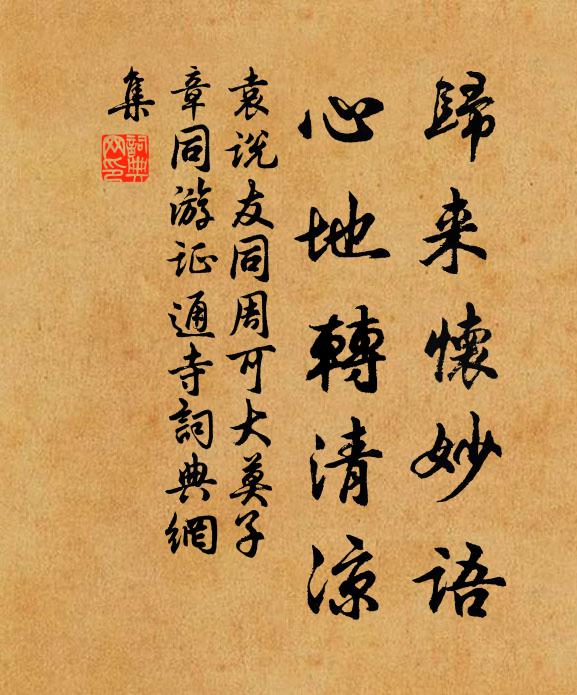 歸来懷妙語
心地轉清涼
袁说友同周可大莫子
章同游证通寺詞典網
集
詞典网印